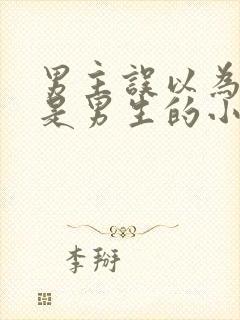 男主誤以為
是男生的小
李掰